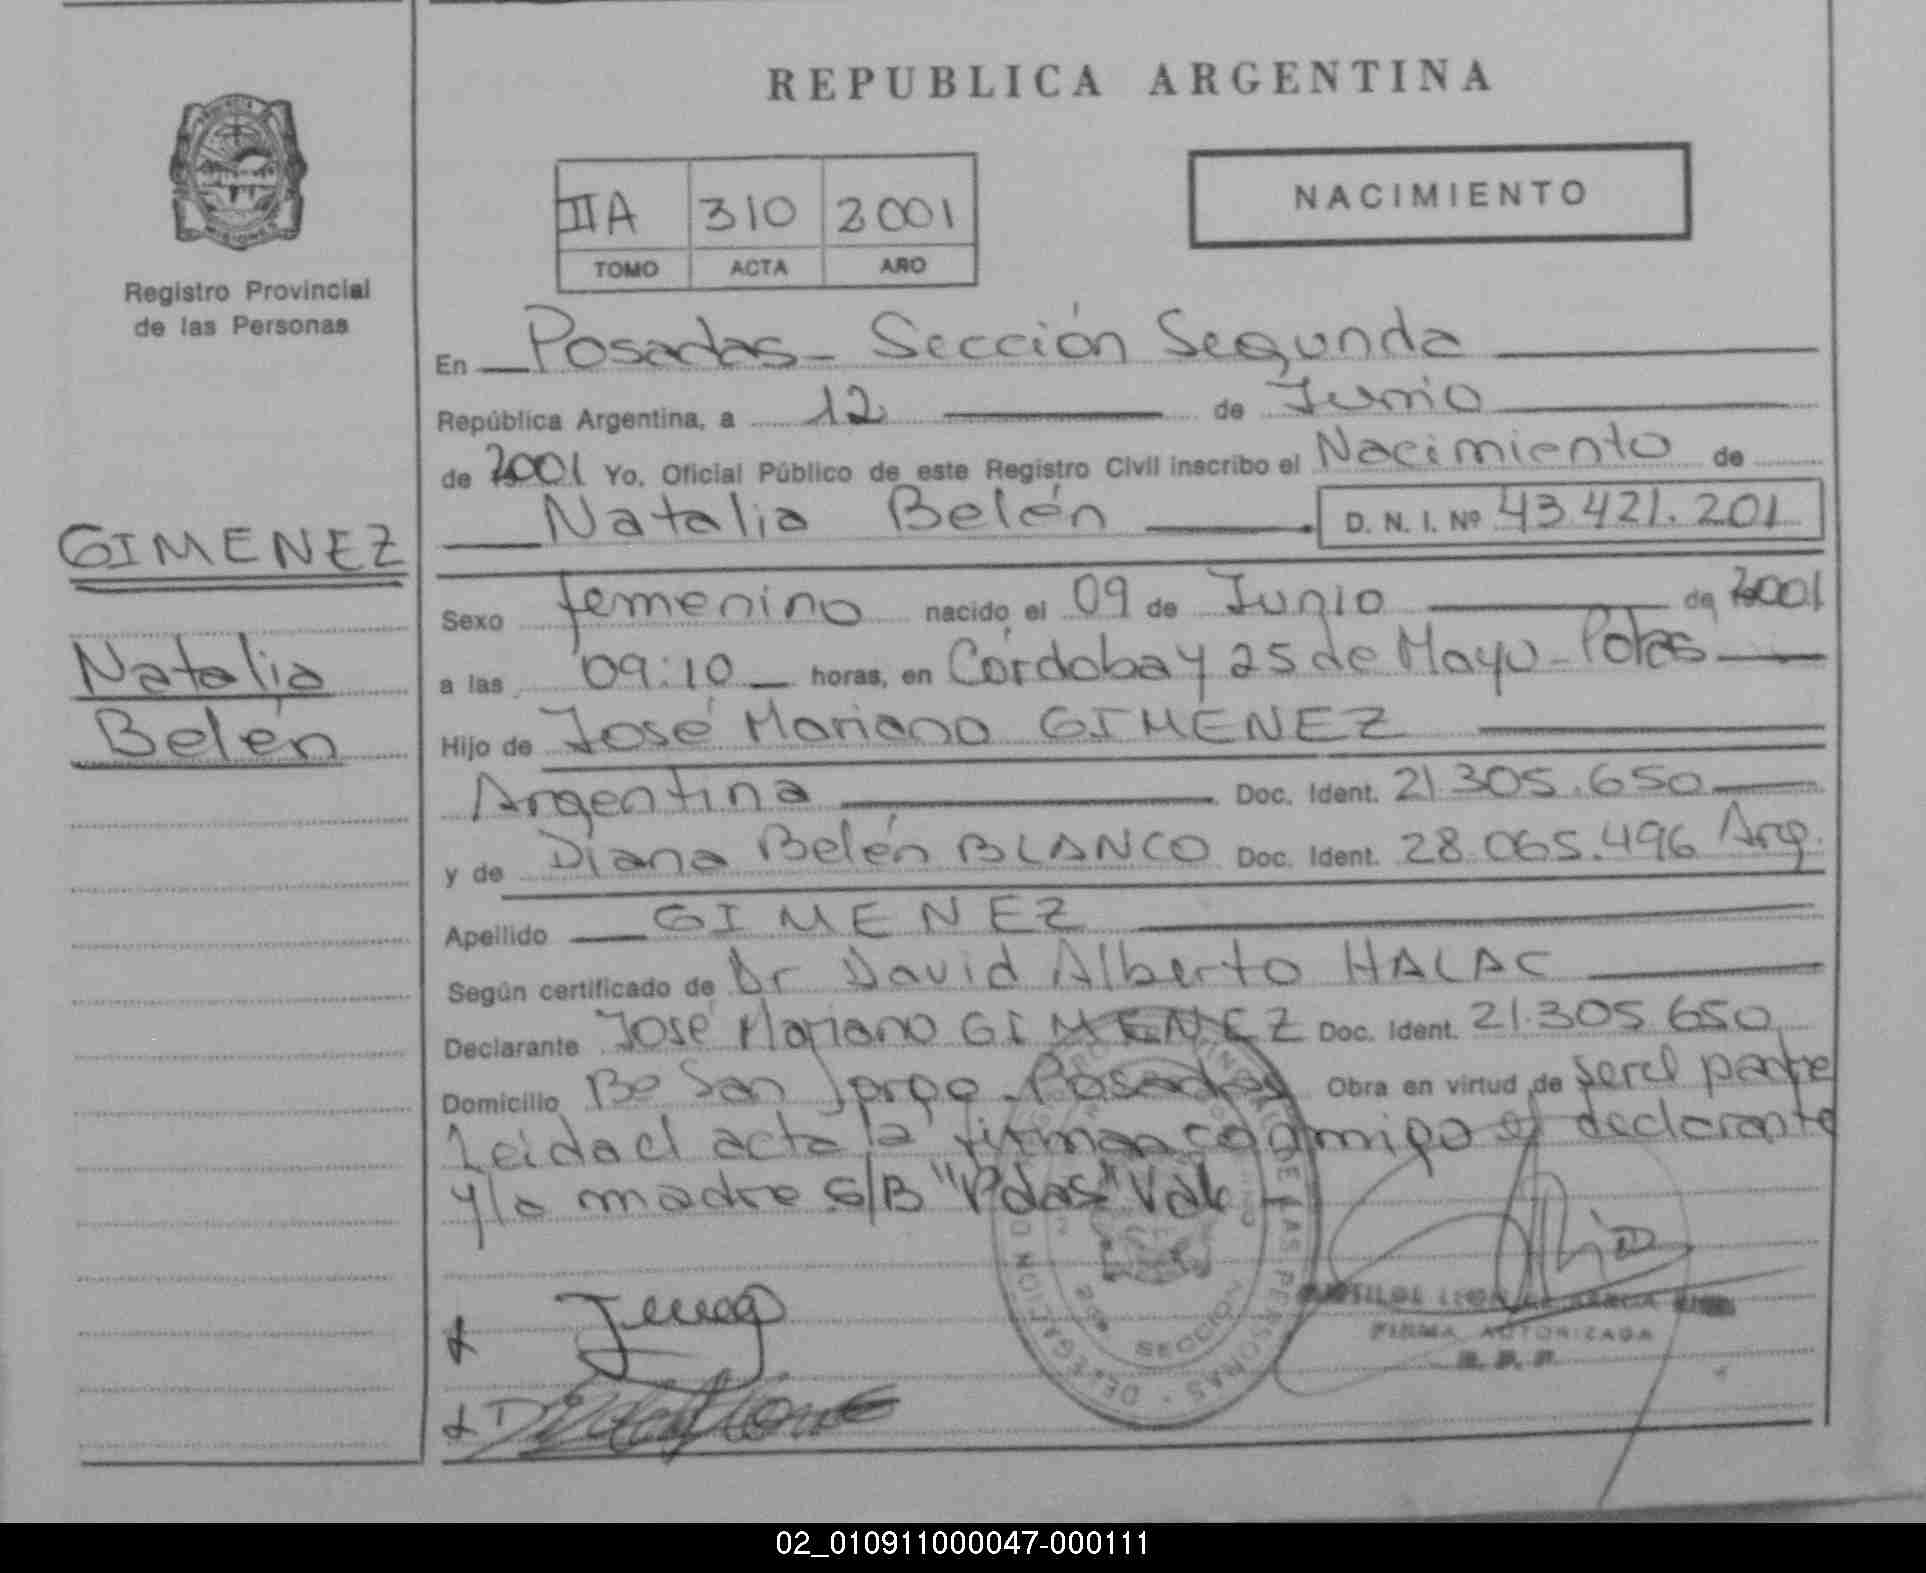 REPUBLICA ARGENTINA
PROVINCIA
MISIONES
Registro Provincial
de las Personas
IIA 310 2001
TOMO ACTA AÑO
NACIMIENTO
En Posadas - Sección Segunda
República Argentina, a 12 de Junio
de 2001 Yo, Oficial Público de este Registro Civil inscribo el Nacimiento de
Natalia Belén D. N. I. Nº 43.421.201
GIMENEZ
Natalia
Belén
Sexo femenino nacido el 09 de Junio de 2001
a las 09:10 horas, en Córdoba y 25 de Mayo - Pdas
Hijo de José Mariano GIMENEZ
Argentina Doc. Ident. 21.305.650
y de Diana Belén BLANCO Doc. Ident. 28.065.496 Arg.
Apellido GIMENEZ
Según certificado de Dr David Alberto HALAC
Declarante José Mariano GIMENEZ Doc. Ident. 21.305.650
Domicilio Bº San Jorge - Posadas Obra en virtud de ser el padre
Leida el acta la firman conmigo el declarante
y la madre S/B "Pdas" Vale
DELEGACION
DE LAS PERSONAS
SECCION
FIRMA AUTORIZADA
R. P. P.
02_010911000047-000111